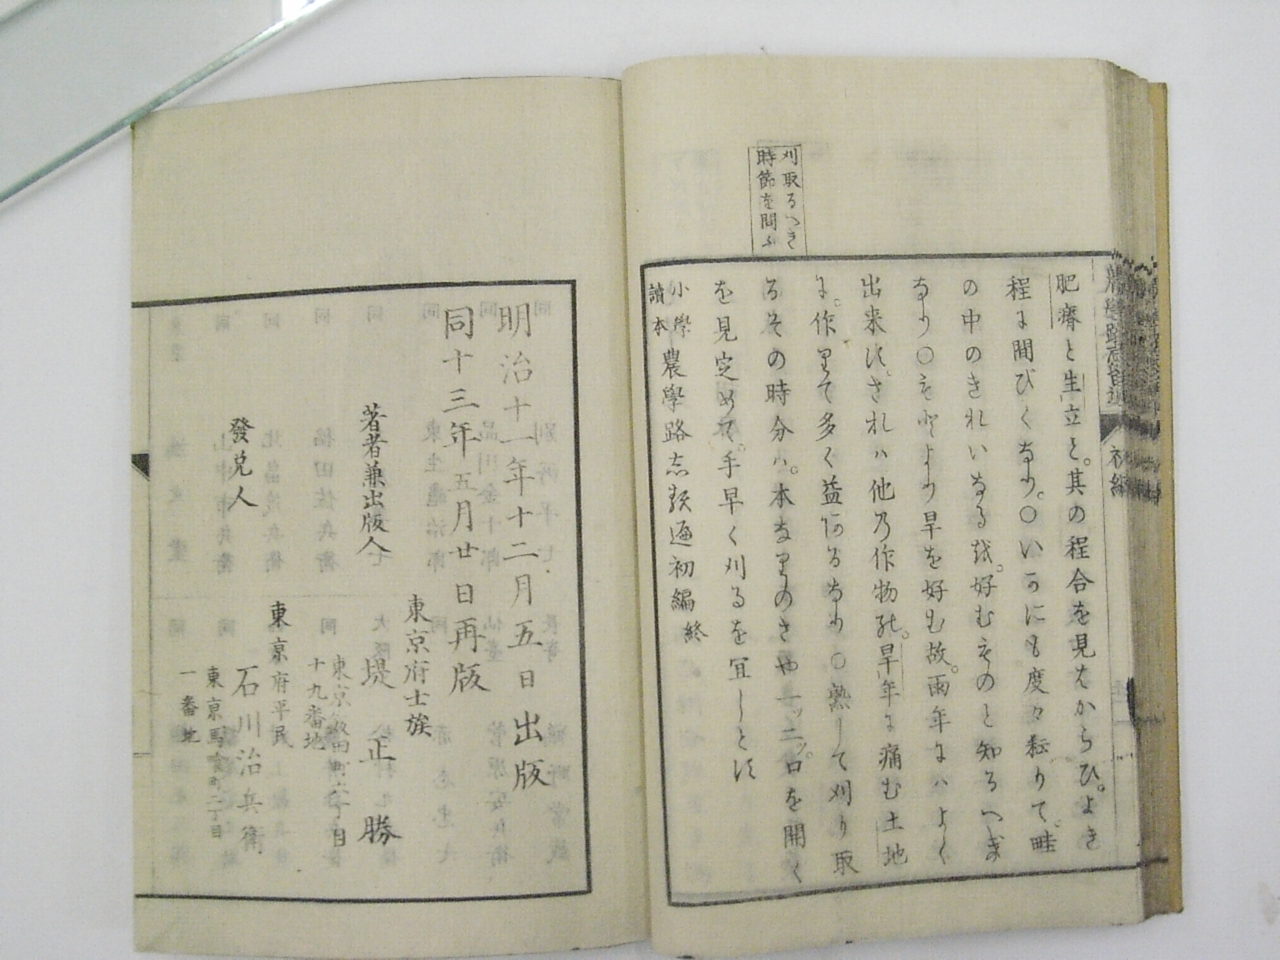 刈取るへき
時節を問ふ
肥瘠と生立と。其の程合を見はからひ。よき
程に間びくなり。〇いかにも度々耘りて。畦
の中のきれいなる或。好むものと知るへし
なり〇もとより旱を好む故。雨年にハよく
出来す。され八他乃作物の。旱年に痛む土地
に。作りて多く益あるなり〇熟して刈り取
るその時分ハ。本なりのさや一ッ二ッ。口を開く
を見定めて。手早く刈るを冝しとす
小學
讀本
農學路志類邊初編終
初編
明治十一年十二月五日出版
同十三年五月廿日再版
東京府士族
著者兼出版人
堤正勝
東京飯田町六丁目
十九番地
東京府平民
發兌人
石川治兵衛
東京馬喰町二丁目
一番地